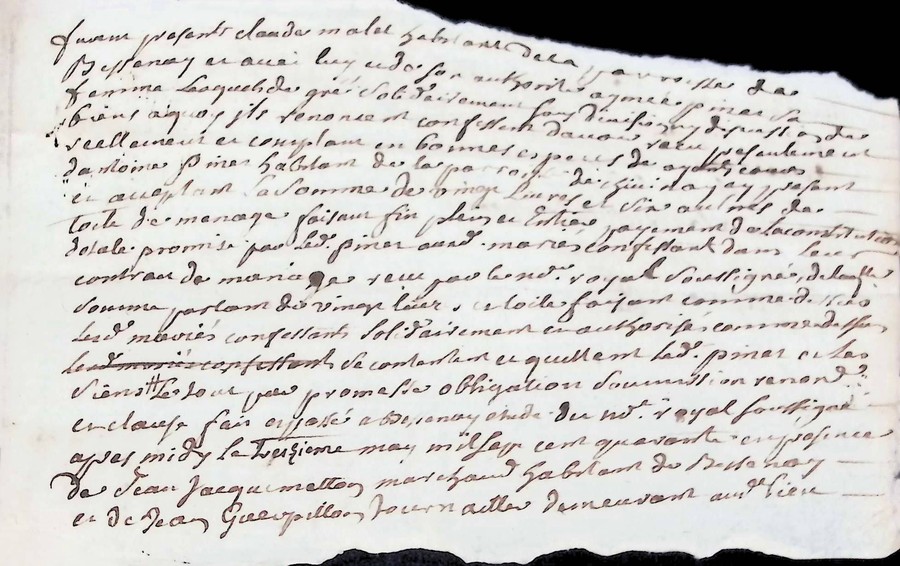 furent presents claude malet habitant de la parroisse de
Bessenay et avec luy et de son authorité aymée pinet sa
femme Lesquels de gré solidairement sans division ny discussion de
biens a quoy ils renoncent confessent d'avoir reçu presentement
reellement et comptant en bonnes especes de ayant cours
d'antoine pinet habitant de la parroisse de present
et acceptant La somme de vingt Livres et six aulnes de
toile de menage faisant fin plein et Entier payement de la constitution
dotale promise par led. pinet auxd. mariés confessant dans leur
contrat de mariage receu par le no.re royal soussigné, de laqlle
somme partant de vingt livres, et toile faisant comme dessus
Lesd. mariés confessants solidairement et authorisés comme dessus
lesd. mariés confessants se contentent et quittent led. pinet et les
siens Le tout par promesse obligation soumission renond.
et clause fait et passé a Bessenay etude du no.re royal soussigné
apres midy le treizieme may mil sept cent quarante en presence
de Jean Jacquemetton marchand habitant de Bessenay
et de Jean Guerpillon Journallier demeurant aud. lieu